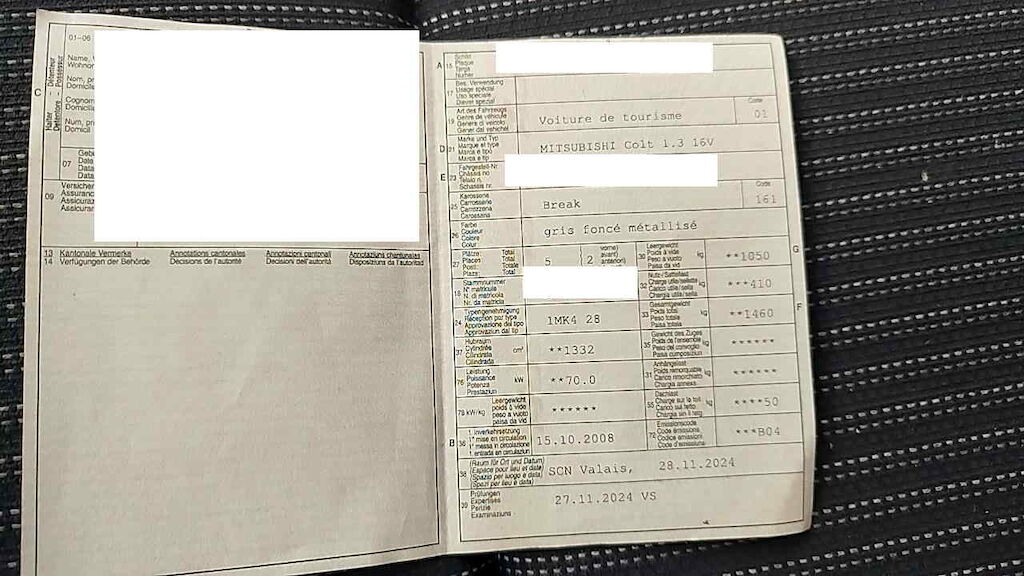 01-06
C
Halter - Détenteur
Detentore - Possessur
Name, V
Wohnor
Nom, pr
Domicile
Cognom
Domicilio
Num, pr
Domicil
07
Geb
Data
Data
09
Versicher
Assuranc
Assicuraz
Assicuran
13 Kantonale Vermerke Annotations cantonales Annotazioni cantonali Annotaziuns chantunalas
14 Verfügungen der Behörde Décisions de l'autorité Decisioni dell'autorità Disposiziuns da l'autoritad
A 15 Schild
Plaque
Targa
Numer
17 Bes. Verwendung
Usage spécial
Uso speciale
Diever spezial
19 Art des Fahrzeugs
Genre de véhicule
Genere di veicolo
Gener dal vehichel
Voiture de tourisme
Code
01
D 21 Marke und Typ
Marque et type
Marca e tipo
Marca e tip
MITSUBISHI Colt 1.3 16V
E 23 Fahrgestell-Nr.
Châssis no
Telaio n.
Schassis nr.
25 Karosserie
Carrosserie
Carrozzeria
Carossaria
Break
Code
161
26 Farbe
Couleur
Colore
Colur
gris foncé métallisé
27 Plätze: Total
Places: Total
Posti: Totale
Plazs: Total
5
2
vorne)
avant)
anteriori)
30 Leergewicht
Poids à vide
Peso a vuoto
Paisa da vid
kg
**1050
G
18 Stammnummer
N° matricule
N. di matricola
Nr. da matricla
32 Nutz-/Sattellast
Charge utile/sellette
Carico utile/sella
Chargia utila/sella
kg
***410
24 Typengenehmigung
Réception par type
Approvazione del tipo
Approvaziun dal tip
1MK4 28
33 Gesamtgewicht
Poids total
Peso totale
Paisa totala
kg
**1460
F
37 Hubraum
Cylindrée
Cilindrata
Cilindrada
cm³
**1332
35 Gewicht des Zuges
Poids de l'ensemble
Peso del convoglio
Paisa cumposiziun
kg
******
76 Leistung
Puissance
Potenza
Prestaziun
kW
**70.0
31 Anhängelast
Poids remorquable
Carico rimorchiato
Chargia annexa
kg
******
78 kW/kg
Leergewicht
poids à vide
peso a vuoto
paisa da vid
******
55 Dachlast
Charge sur le toit
Carico sul tetto
Chargia sin il tetg
kg
****50
B 36 1. Inverkehrsetzung
1re mise en circulation
1a messa in circolazione
1. entrada en circulaziun
15.10.2008
72 Emissionscode
Code émissions
Codice emissioni
Code d'emissiuns
***B04
38 (Raum für Ort und Datum)
(Espace pour lieu et date)
(Spazio per luogo e data)
(Spazi per lieu e data)
SCN Valais, 28.11.2024
39 Prüfungen
Expertises
Perizie
Examinaziuns
27.11.2024 VS